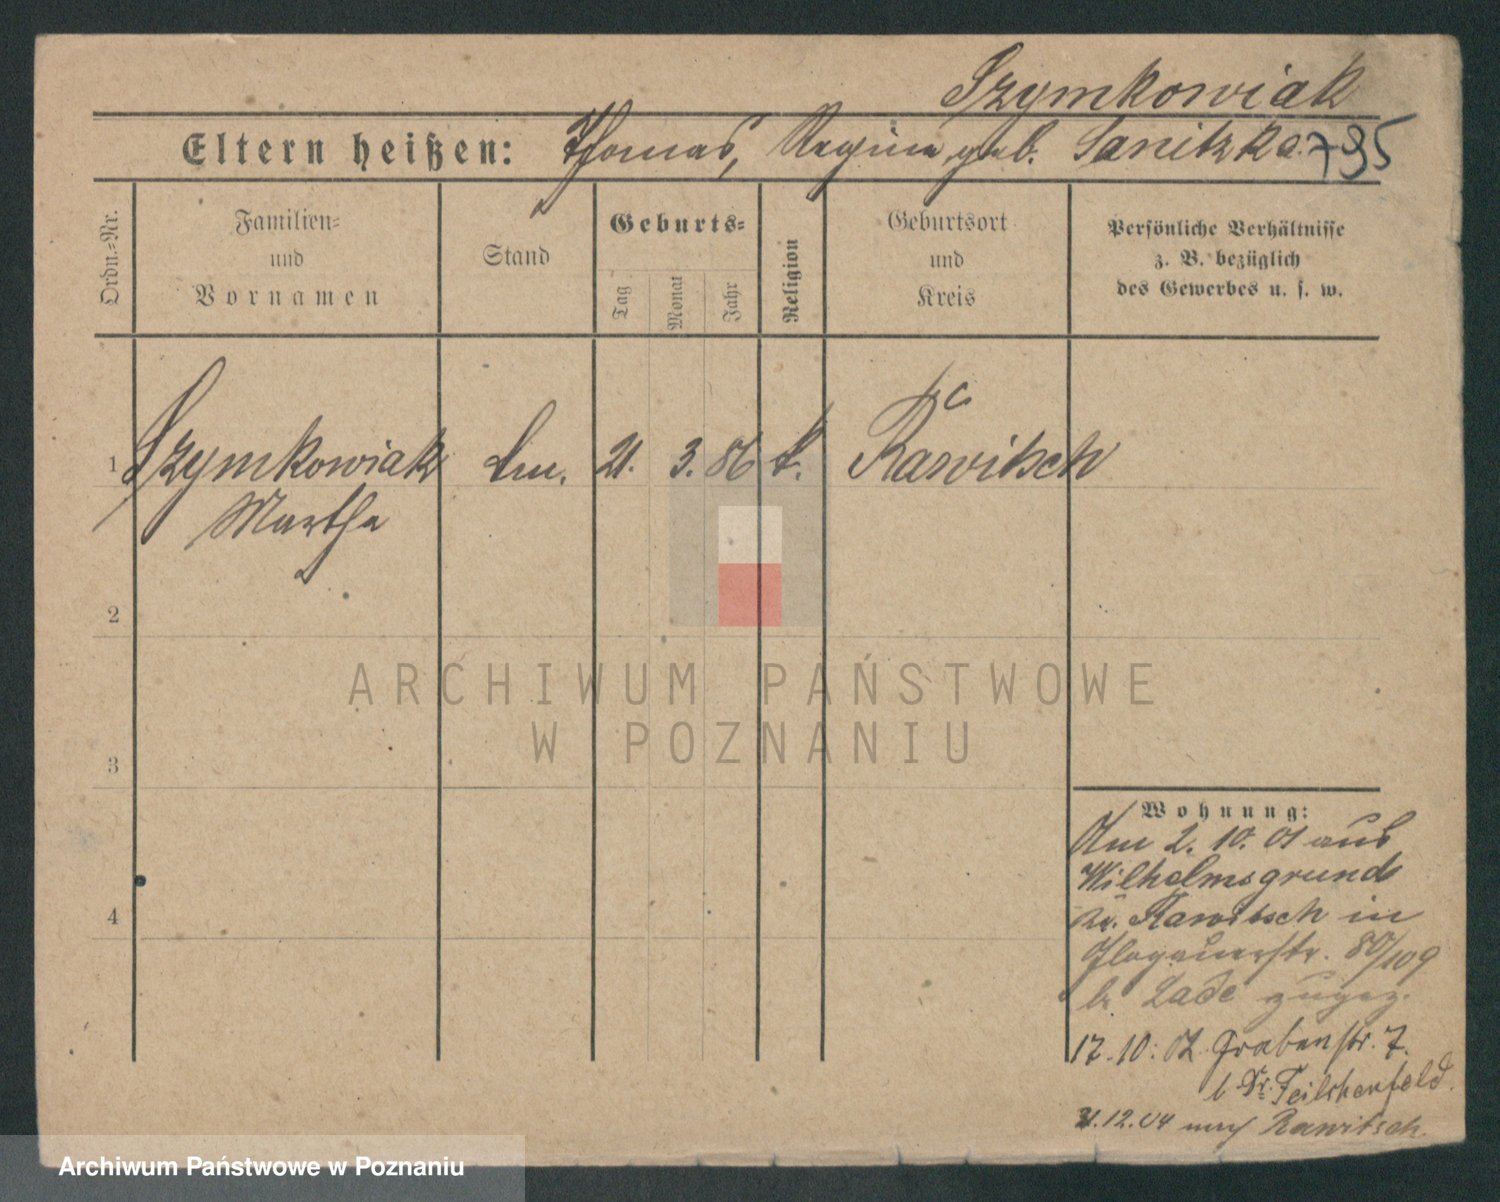 Szymkowiak
Eltern heißen: Thomas, Regina geb. Sanitzka. 795
Ordn.=Nr.
Familien=
und
Vornamen
Stand
Geburts=
Tag
Monat
Jahr
Religion
Geburtsort
und
Kreis
Persönliche Verhältnisse
z. B. bezüglich
des Gewerbes u. s. w.
1 Szymkowiak 21. 3. 86 k. Rawitsch
Martha
2
3
4
ARCHIWUM PAŃSTWOWE
W POZNANIU
Wohnung:
Am 2. 10. 01 aus
Wilhelmsgrund
Kr. Rawitsch in
Glogauerstr. 80/109
b. Lade zugez.
17. 10. 02 Grabenstr. 7.
b Dr. Teilchenfeld.
31.12.04 nach Rawitsch.
Archiwum Państwowe w Poznaniu